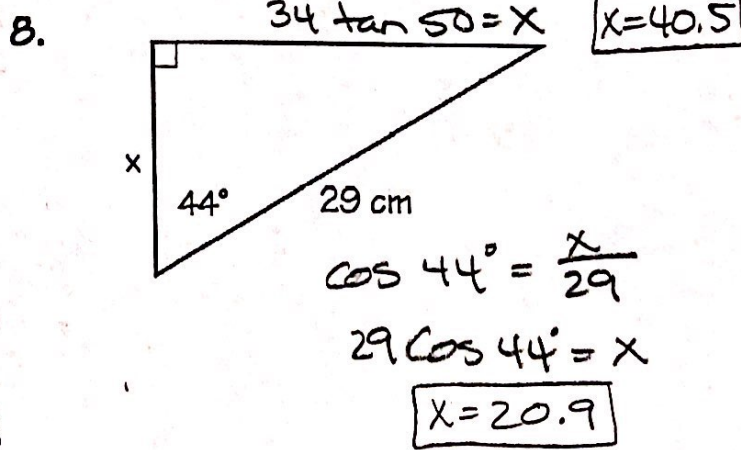 34 tan 50 = x x=40.5
8.
x
44° 29 cm
cos 44° = x/29
29 cos 44° = x
x = 20.9